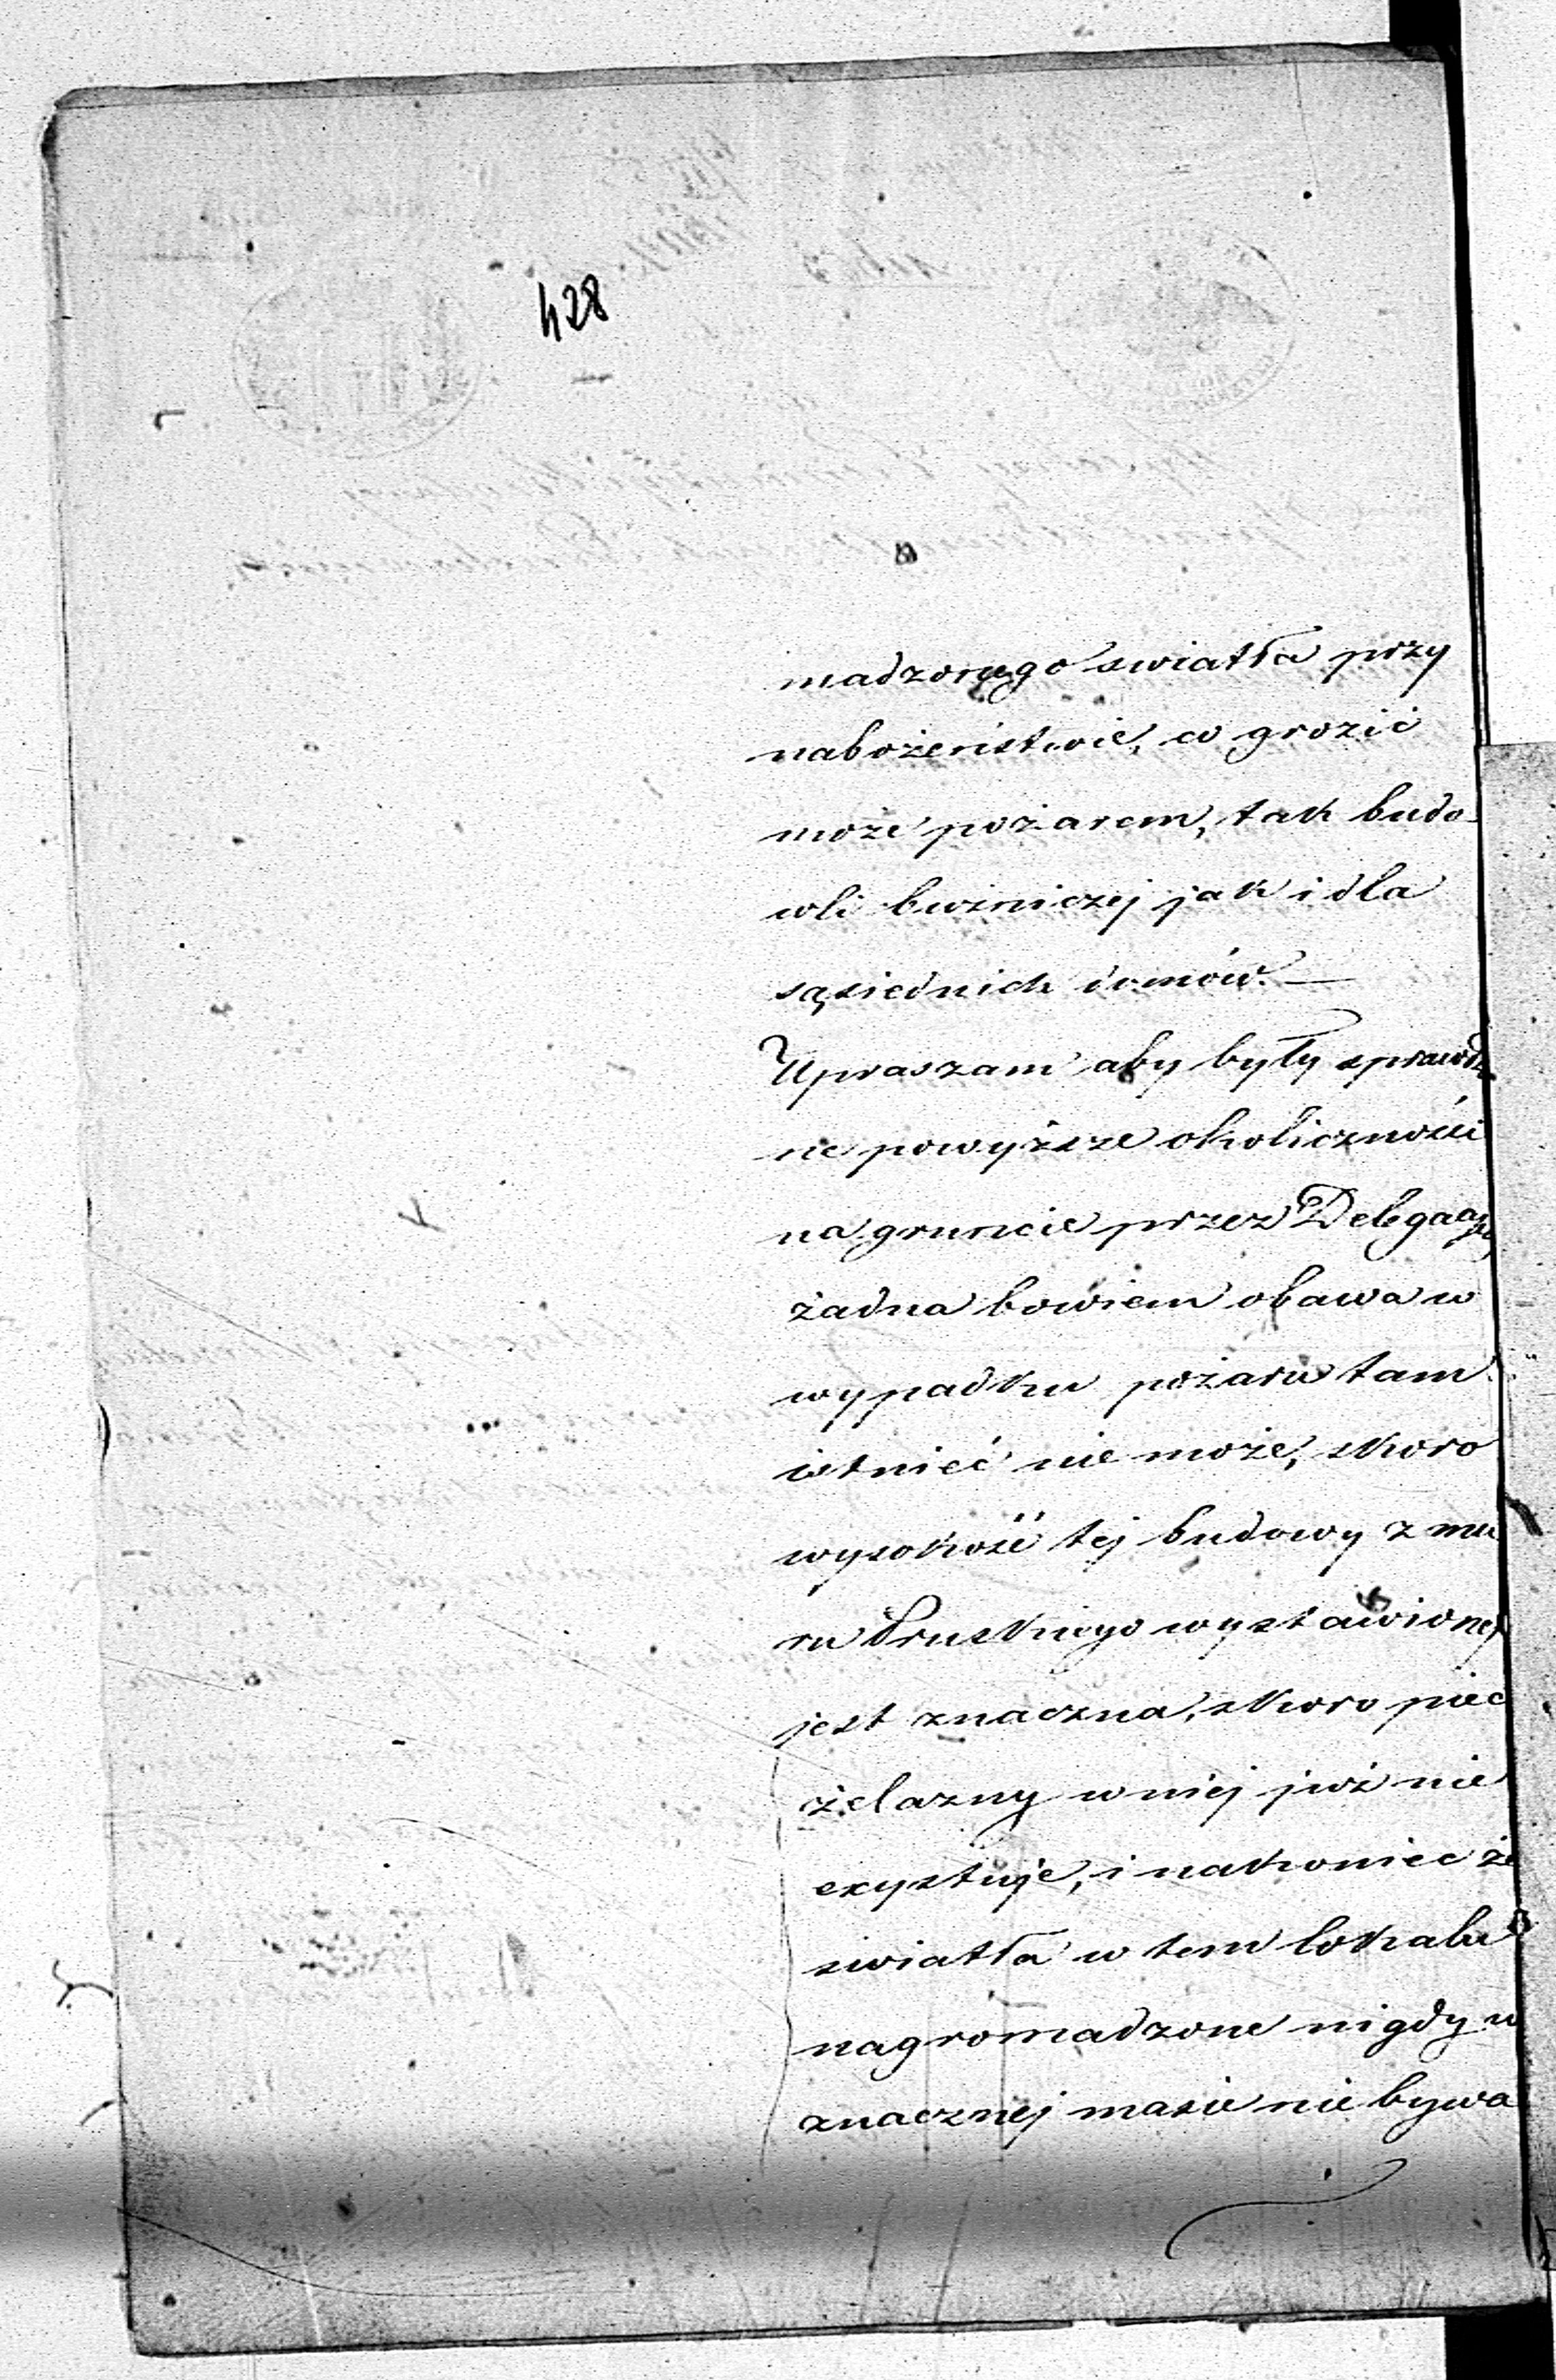 428
madzonego swiatła przy
nabożeństwie, co grozić
może pożarem, tak budo-
wli bużniczej jak i dla
sąsiednich domów. —
Upraszam aby były sprawdz
ne powyższe okoliczności
na gruncie przez Delegacyą
żadna bowiem obawa w
wypadku pożaru tam
istnieć nie może, skoro
wysokość tej budowy z mu
ru Pruskiego wystawionej
jest znaczna, skoro piec
żelazny w niej już nie
exystuje, i nakoniec że
swiatła w tem lokalu
nagromadzone nigdy w
znacznej masie nie bywa